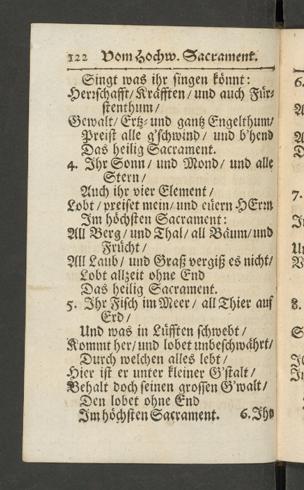 122 Vom Hochw. Sacrament.
Singt was ihr singen könnt:
Herrschafft/ Kräfften/ und auch Für-
stenthum/
Gewalt/ Ertz- und gantz Engelthum/
Preist alle g'schwind/ und b'hend
Das heilig Sacrament.
4. Ihr Sonn/ und Mond/ und alle
Stern/
Auch ihr vier Element/
Lobt/ preiset mein/ und euern HErrn
Im höchsten Sacrament:
All Berg/ und Thal/ all Bäum/und
Frücht/
All Laub/ und Graß vergiß es nicht/
Lobt allzeit ohne End
Das heilig Sacrament.
5. Ihr Fisch im Meer/ all Thier auf
Erd/
Und was in Lüfften schwebt/
Kommt her/ und lobet unbeschwährt/
Durch welchen alles lebt/
Hier ist er unter kleiner G'stalt/
Behalt doch seinen grossen G'walt/
Den lobet ohne End
Im höchsten Sacrament. 6. Ihr
6.
7.
8.